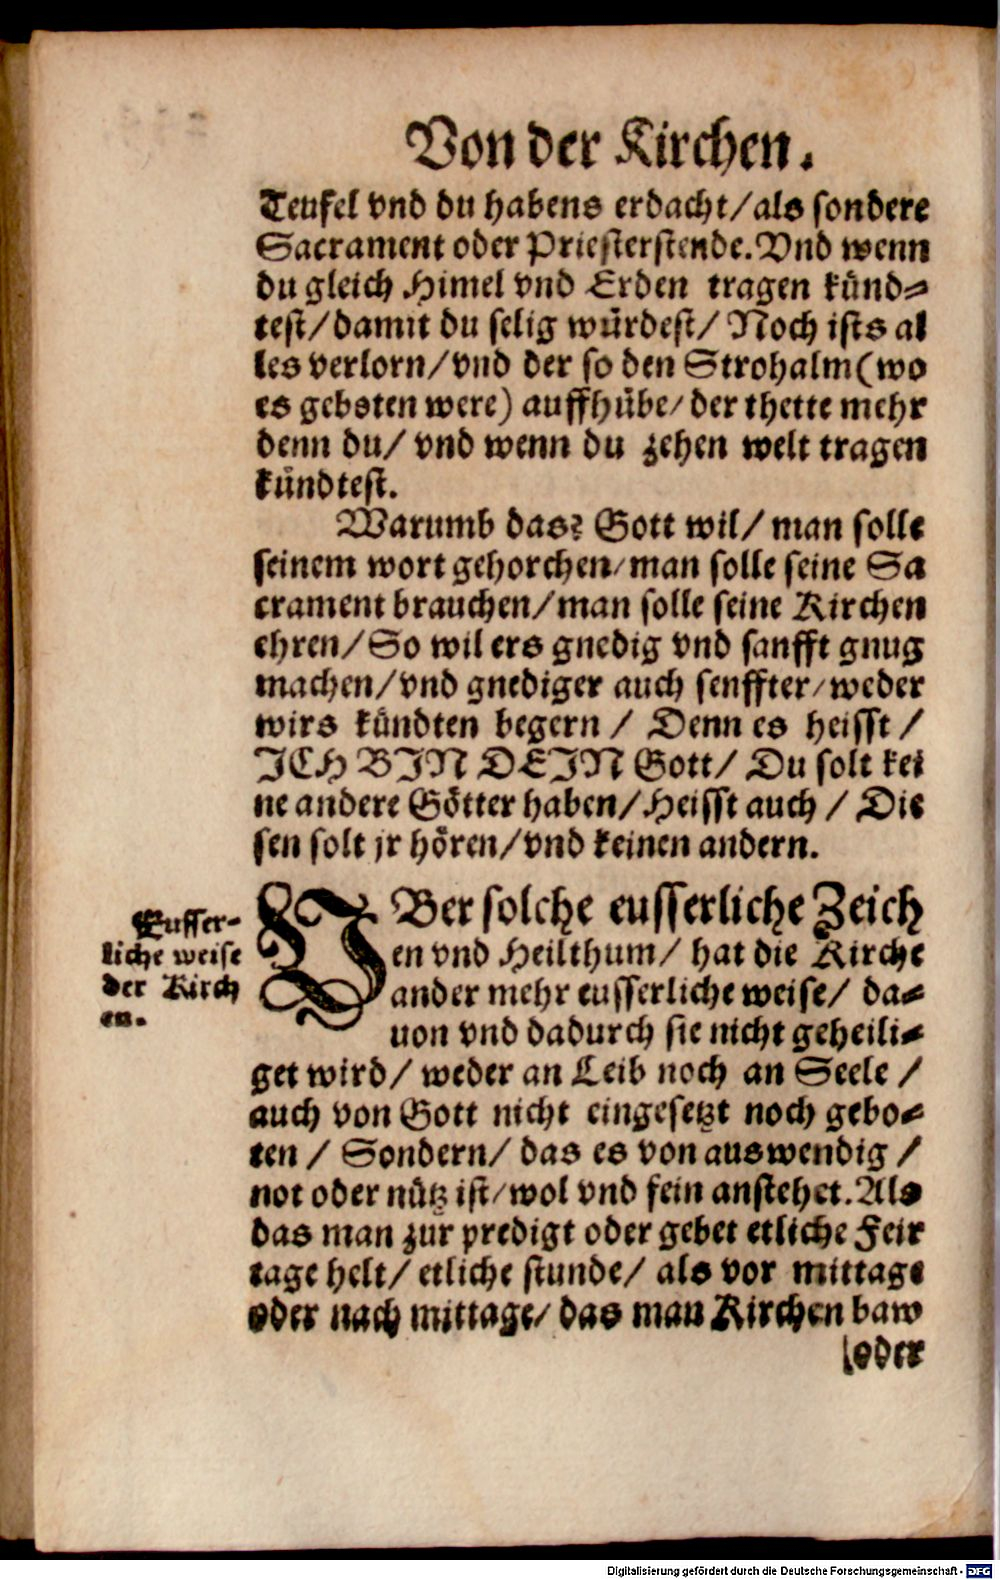 Von der Kirchen.
Teufel vnd du habens erdacht/als sondere
Sacrament oder Priesterstende. Vnd wenn
du gleich Himel vnd Erden tragen künd-
test/damit du selig würdest/Noch ists al
les verlorn/vnd der so den Strohalm(wo
es geboten were) auffhübe/der thette mehr
denn du/ vnd wenn du zehen welt tragen
kündtest.
Warumb das? Gott wil/ man solle
seinem wort gehorchen/man solle seine Sa
crament brauchen/man solle seine Kirchen
ehren/So wil ers gnedig vnd sanfft gnug
machen/vnd gnediger auch senffter/weder
wirs kündten begern / Denn es heisst /
JCH BJN DEJN Gott/ Du solt kei
ne andere Götter haben/Heisst auch / Die
sen solt jr hören/vnd keinen andern.
Eusser-
liche weise
der Kirch
en.
VBer solche eusserliche Zeich
en vnd Heilthum/ hat die Kirche
ander mehr eusserliche weise/ da-
uon vnd dadurch sie nicht geheili-
get wird/ weder an Leib noch an Seele /
auch von Gott nicht eingesetzt noch gebo-
ten / Sondern/ das es von auswendig /
not oder nütz ist/wol vnd fein anstehet. Als
das man zur predigt oder gebet etliche Feir
tage helt/ etliche stunde/ als vor mittage
oder nach mittage/ das man Kirchen baw
oder
Digitalisierung gefördert durch die Deutsche Forschungsgemeinschaft - DFG